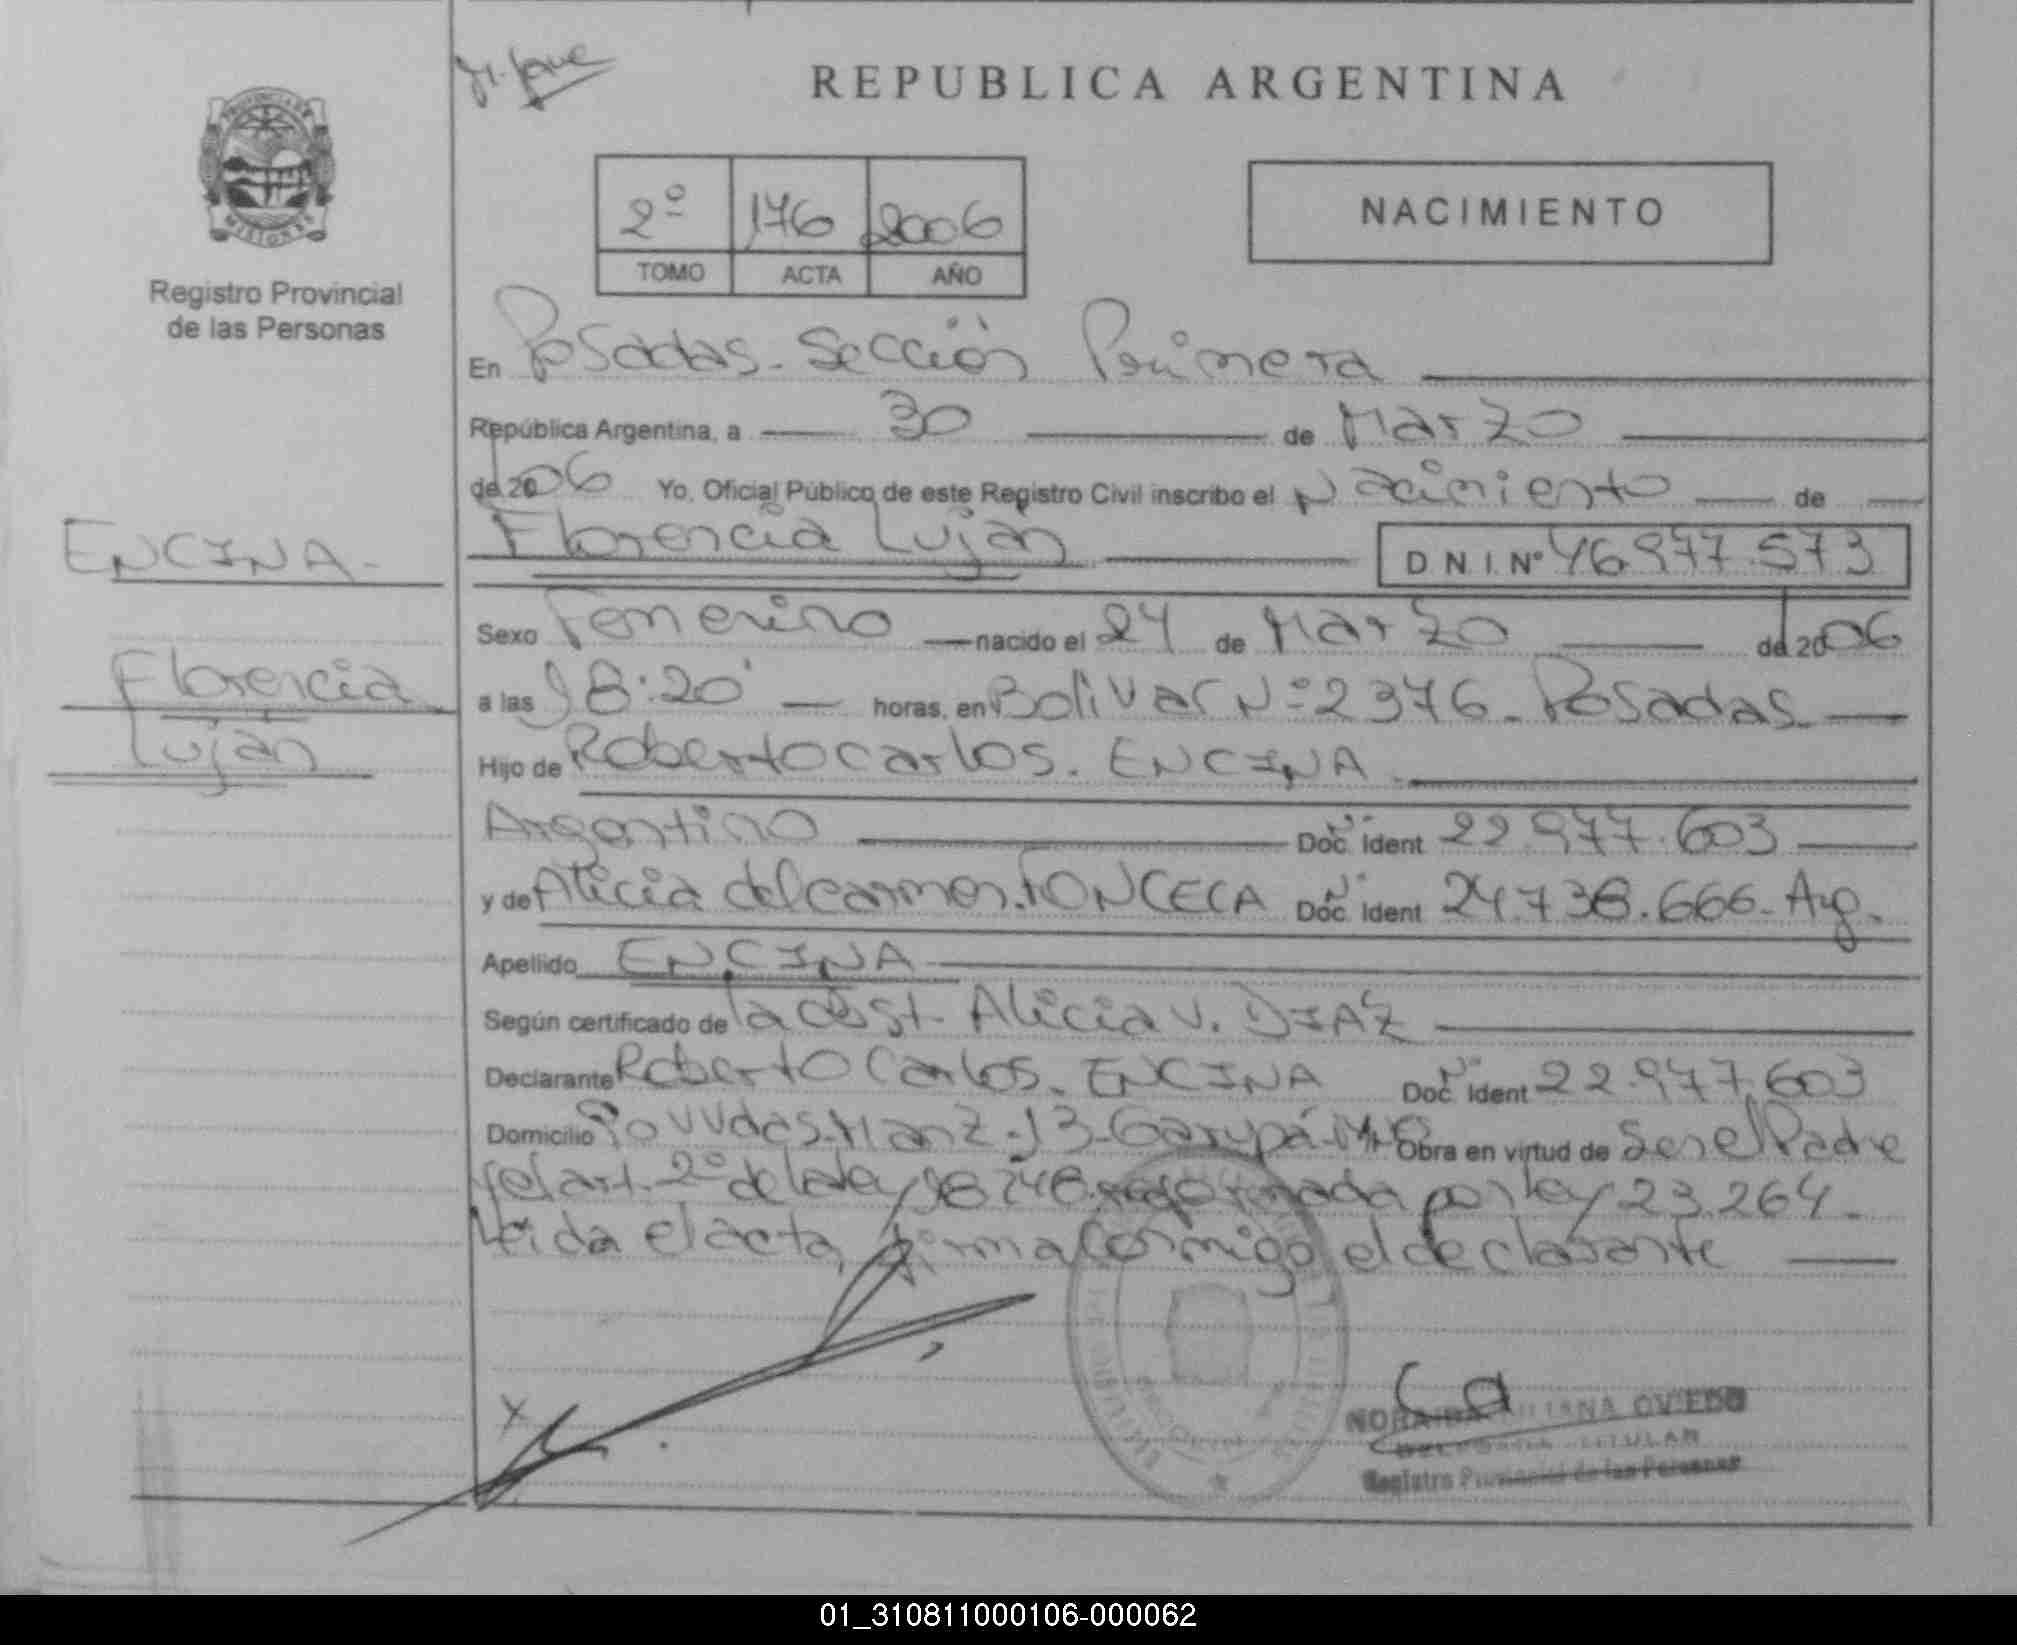 REPUBLICA ARGENTINA
PROVINCIA DE
MISIONES
Registro Provincial
de las Personas
2º 176 2006
TOMO ACTA AÑO
NACIMIENTO
En Posadas. Sección Primera
República Argentina, a 30 de Marzo
de 2006 Yo, Oficial Público de este Registro Civil inscribo el Nacimiento de
Florencia Luján D N I. Nº 46.977.573
ENCINA.
Florencia
Luján
Sexo Femenino nacido el 24 de Marzo de 2006
a las 18:20' horas, en Bolivar Nº 2376. Posadas.
Hijo de Roberto Carlos. ENCINA.
Argentino Doc. Ident 22.977.603
y de Alicia del Carmen. FONCECA Doc. Ident 24.738.666. Arg.
Apellido ENCINA
Según certificado de la Obst. Alicia V. DIAZ
Declarante Roberto Carlos. ENCINA Doc. Ident 22.977.603
Domicilio Manz. 13. Garupá. Obra en virtud de Ser el Padre
y el art. 2º de la ley 18.248. reformada por ley 23.264.
Leída el acta, firma conmigo el declarante
X
OVIEDO
TITULAR
Registro Provincial de las Personas
01_310811000106-000062